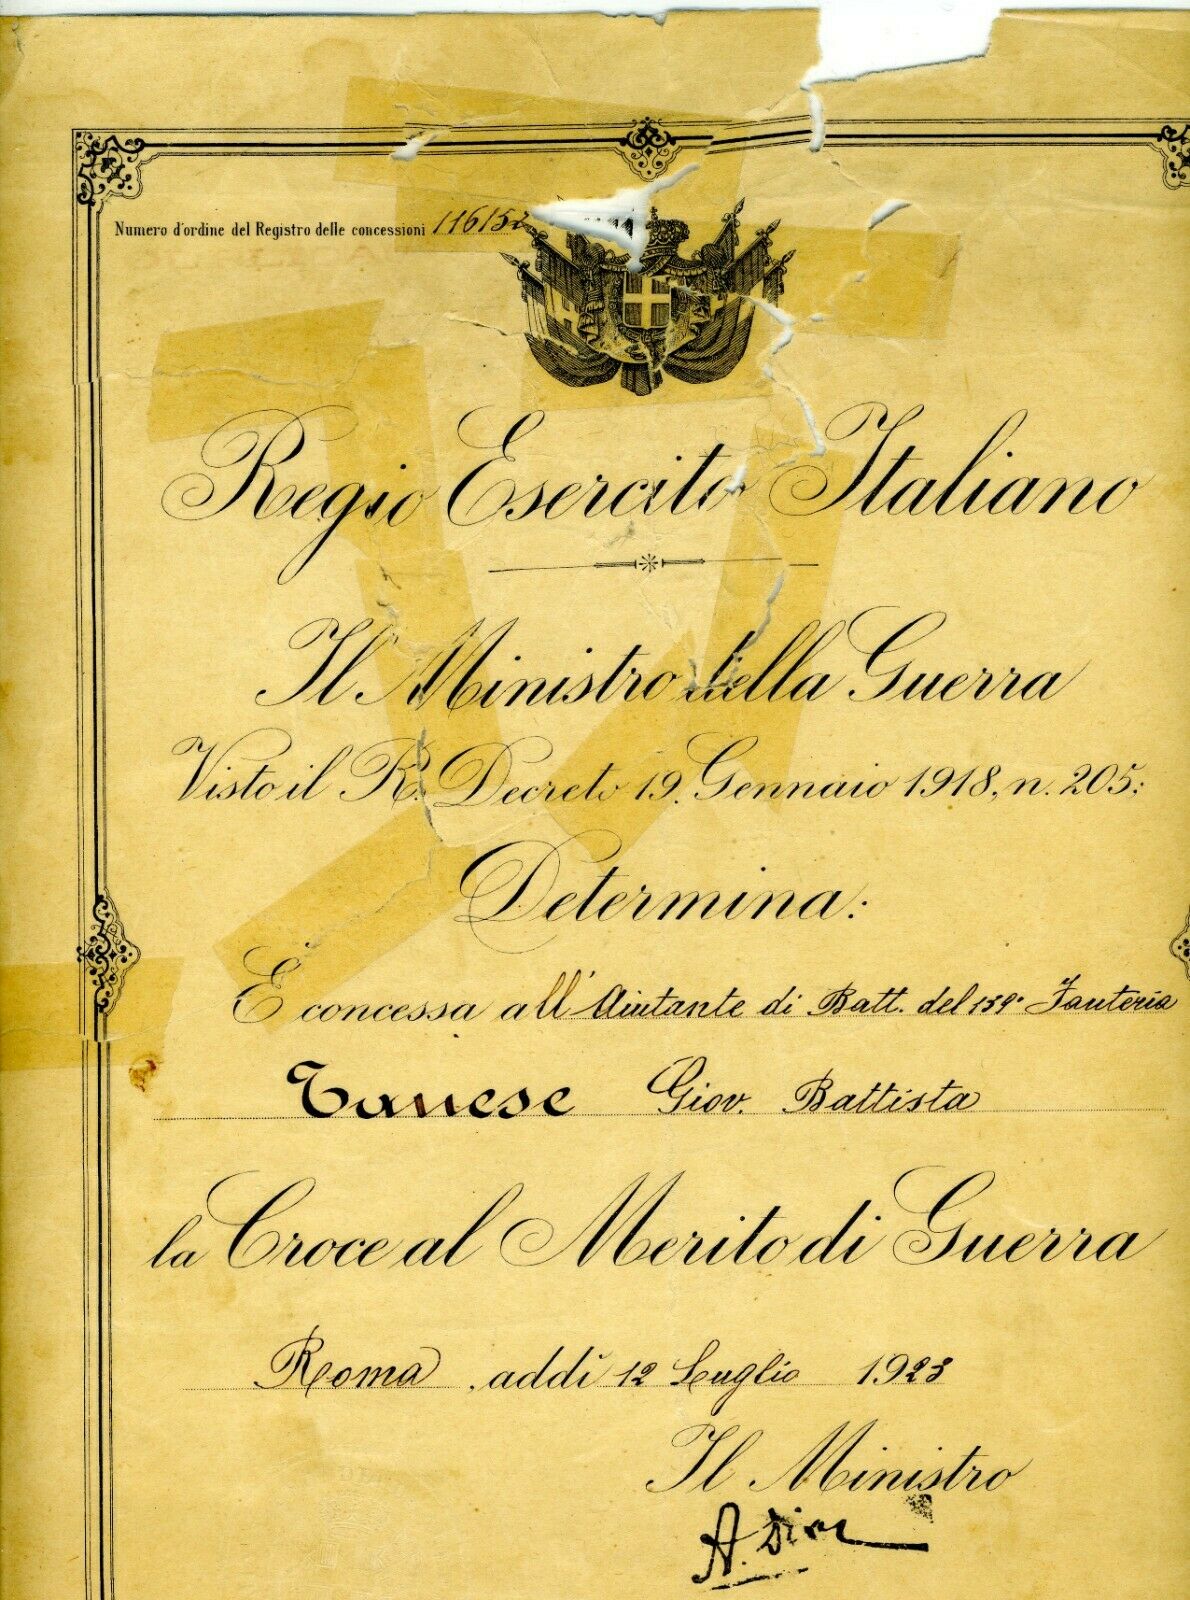 Numero d'ordine del Registro delle concessioni 116152
Regio Esercito Italiano
Il Ministro della Guerra
Visto il R. Decreto 19. Gennaio 1918, n. 205:
Determina:
È concessa all'Aiutante di Batt. del 159° Fanteria
Tanese Giov. Battista
la Croce al Merito di Guerra
Roma, addì 12 Luglio 1923
Il Ministro
A.